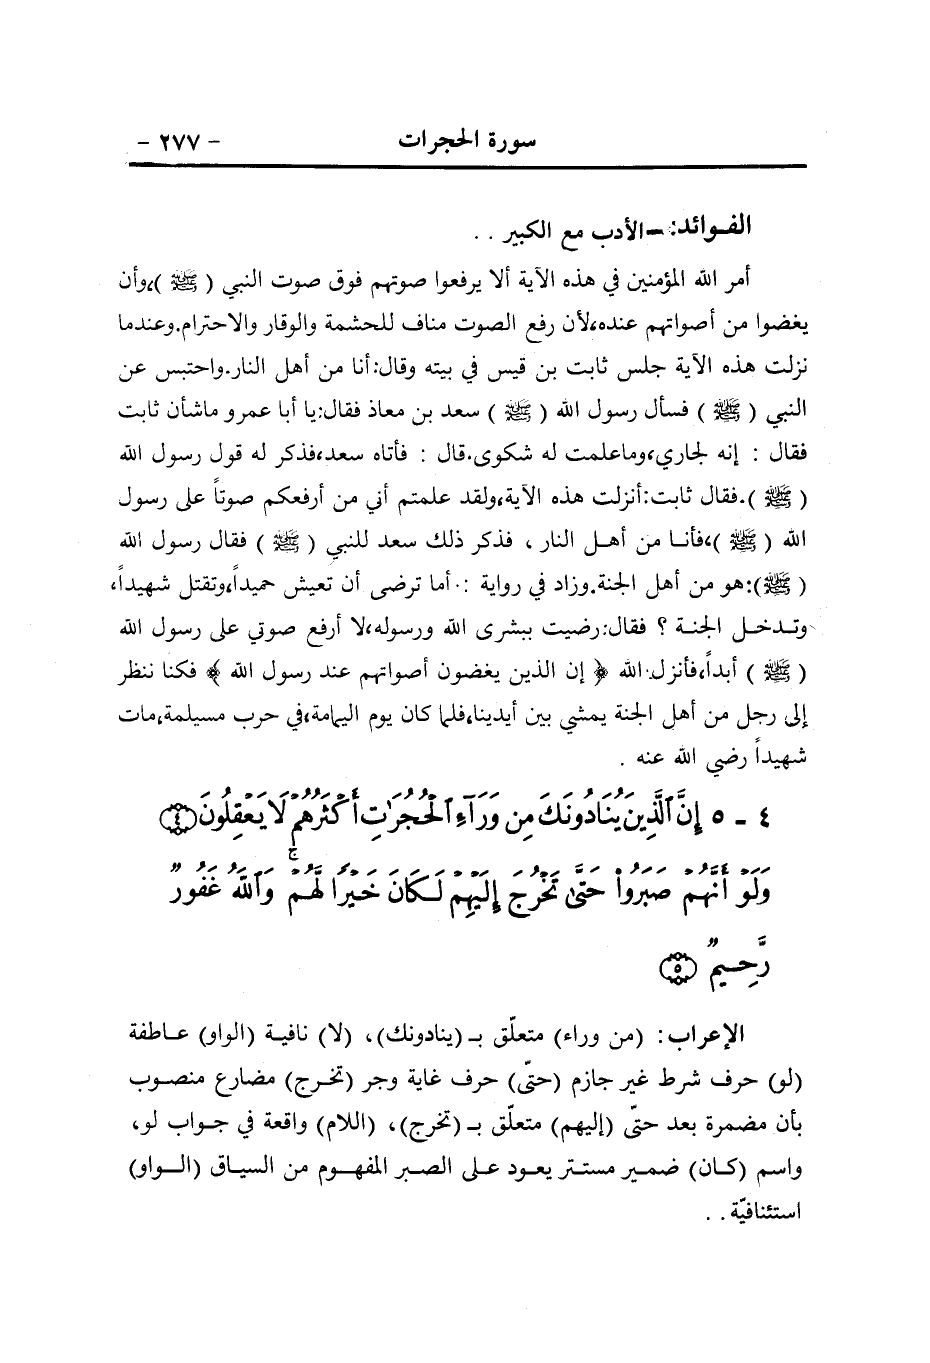 سورة الحجرات - ٢٧٧ -
الفـوائد: - الأدب مع الكبير . .
أمر الله المؤمنين في هذه الآية ألا يرفعوا صوتهم فوق صوت النبي ( ﷺ )، وأن
يغضوا من أصواتهم عنده، لأن رفع الصوت مناف للحشمة والوقار والاحترام. وعندما
نزلت هذه الآية جلس ثابت بن قيس في بيته وقال: أنا من أهل النار. واحتبس عن
النبي ( ﷺ ) فسأل رسول الله ( ﷺ ) سعد بن معاذ فقال: يا أبا عمرو ماشأن ثابت
فقال : إنه لجاري، وماعلمت له شكوى. قال : فأتاه سعد، فذكر له قول رسول الله
( ﷺ ). فقال ثابت: أنزلت هذه الآية، ولقد علمتم أني من أرفعكم صوتاً على رسول
الله ( ﷺ )، فأنـا من أهـل النار ، فذكر ذلك سعد للنبي ( ﷺ ) فقال رسول الله
( ﷺ): هو من أهل الجنة. وزاد في رواية : أما ترضى أن تعيش حميداً، وتقتل شهيداً،
وتـدخـل الجنـة ؟ فقال: رضيت ببشرى الله ورسوله، لا أرفع صوتي على رسول الله
( ﷺ ) أبداً، فأنزل الله ﴿ إن الذين يغضون أصواتهم عند رسول الله ﴾ فكنا ننظر
إلى رجل من أهل الجنة يمشي بين أيدينا، فلما كان يوم اليمامة، في حرب مسيلمة، مات
شهيداً رضي الله عنه .
٤ - ٥ إِنَّ ٱلَّذِينَ يُنَادُونَكَ مِن وَرَآءِ ٱلْحُجُرَٰتِ أَكْثَرُهُمْ لَا يَعْقِلُونَ ﴿٤﴾
وَلَوْ أَنَّهُمْ صَبَرُوا۟ حَتَّىٰ تَخْرُجَ إِلَيْهِمْ لَكَانَ خَيْرًا لَّهُمْ ۚ وَٱللَّهُ غَفُورٌ
رَّحِيمٌ ﴿٥﴾
الإعراب: (من وراء) متعلّق بـ (ينادونك)، (لا) نافيـة (الواو) عـاطفة
(لو) حرف شرط غير جازم (حتّى) حرف غاية وجر (تخـرج) مضارع منصـوب
بأن مضمرة بعد حتّى (إليهم) متعلّق بـ (تخرج)، (اللام) واقعة في جـواب لو،
واسم (كـان) ضميـر مستـتر يعـود علـى الصبر المفهـوم من السيـاق (الـواو)
استئنافيّة . .